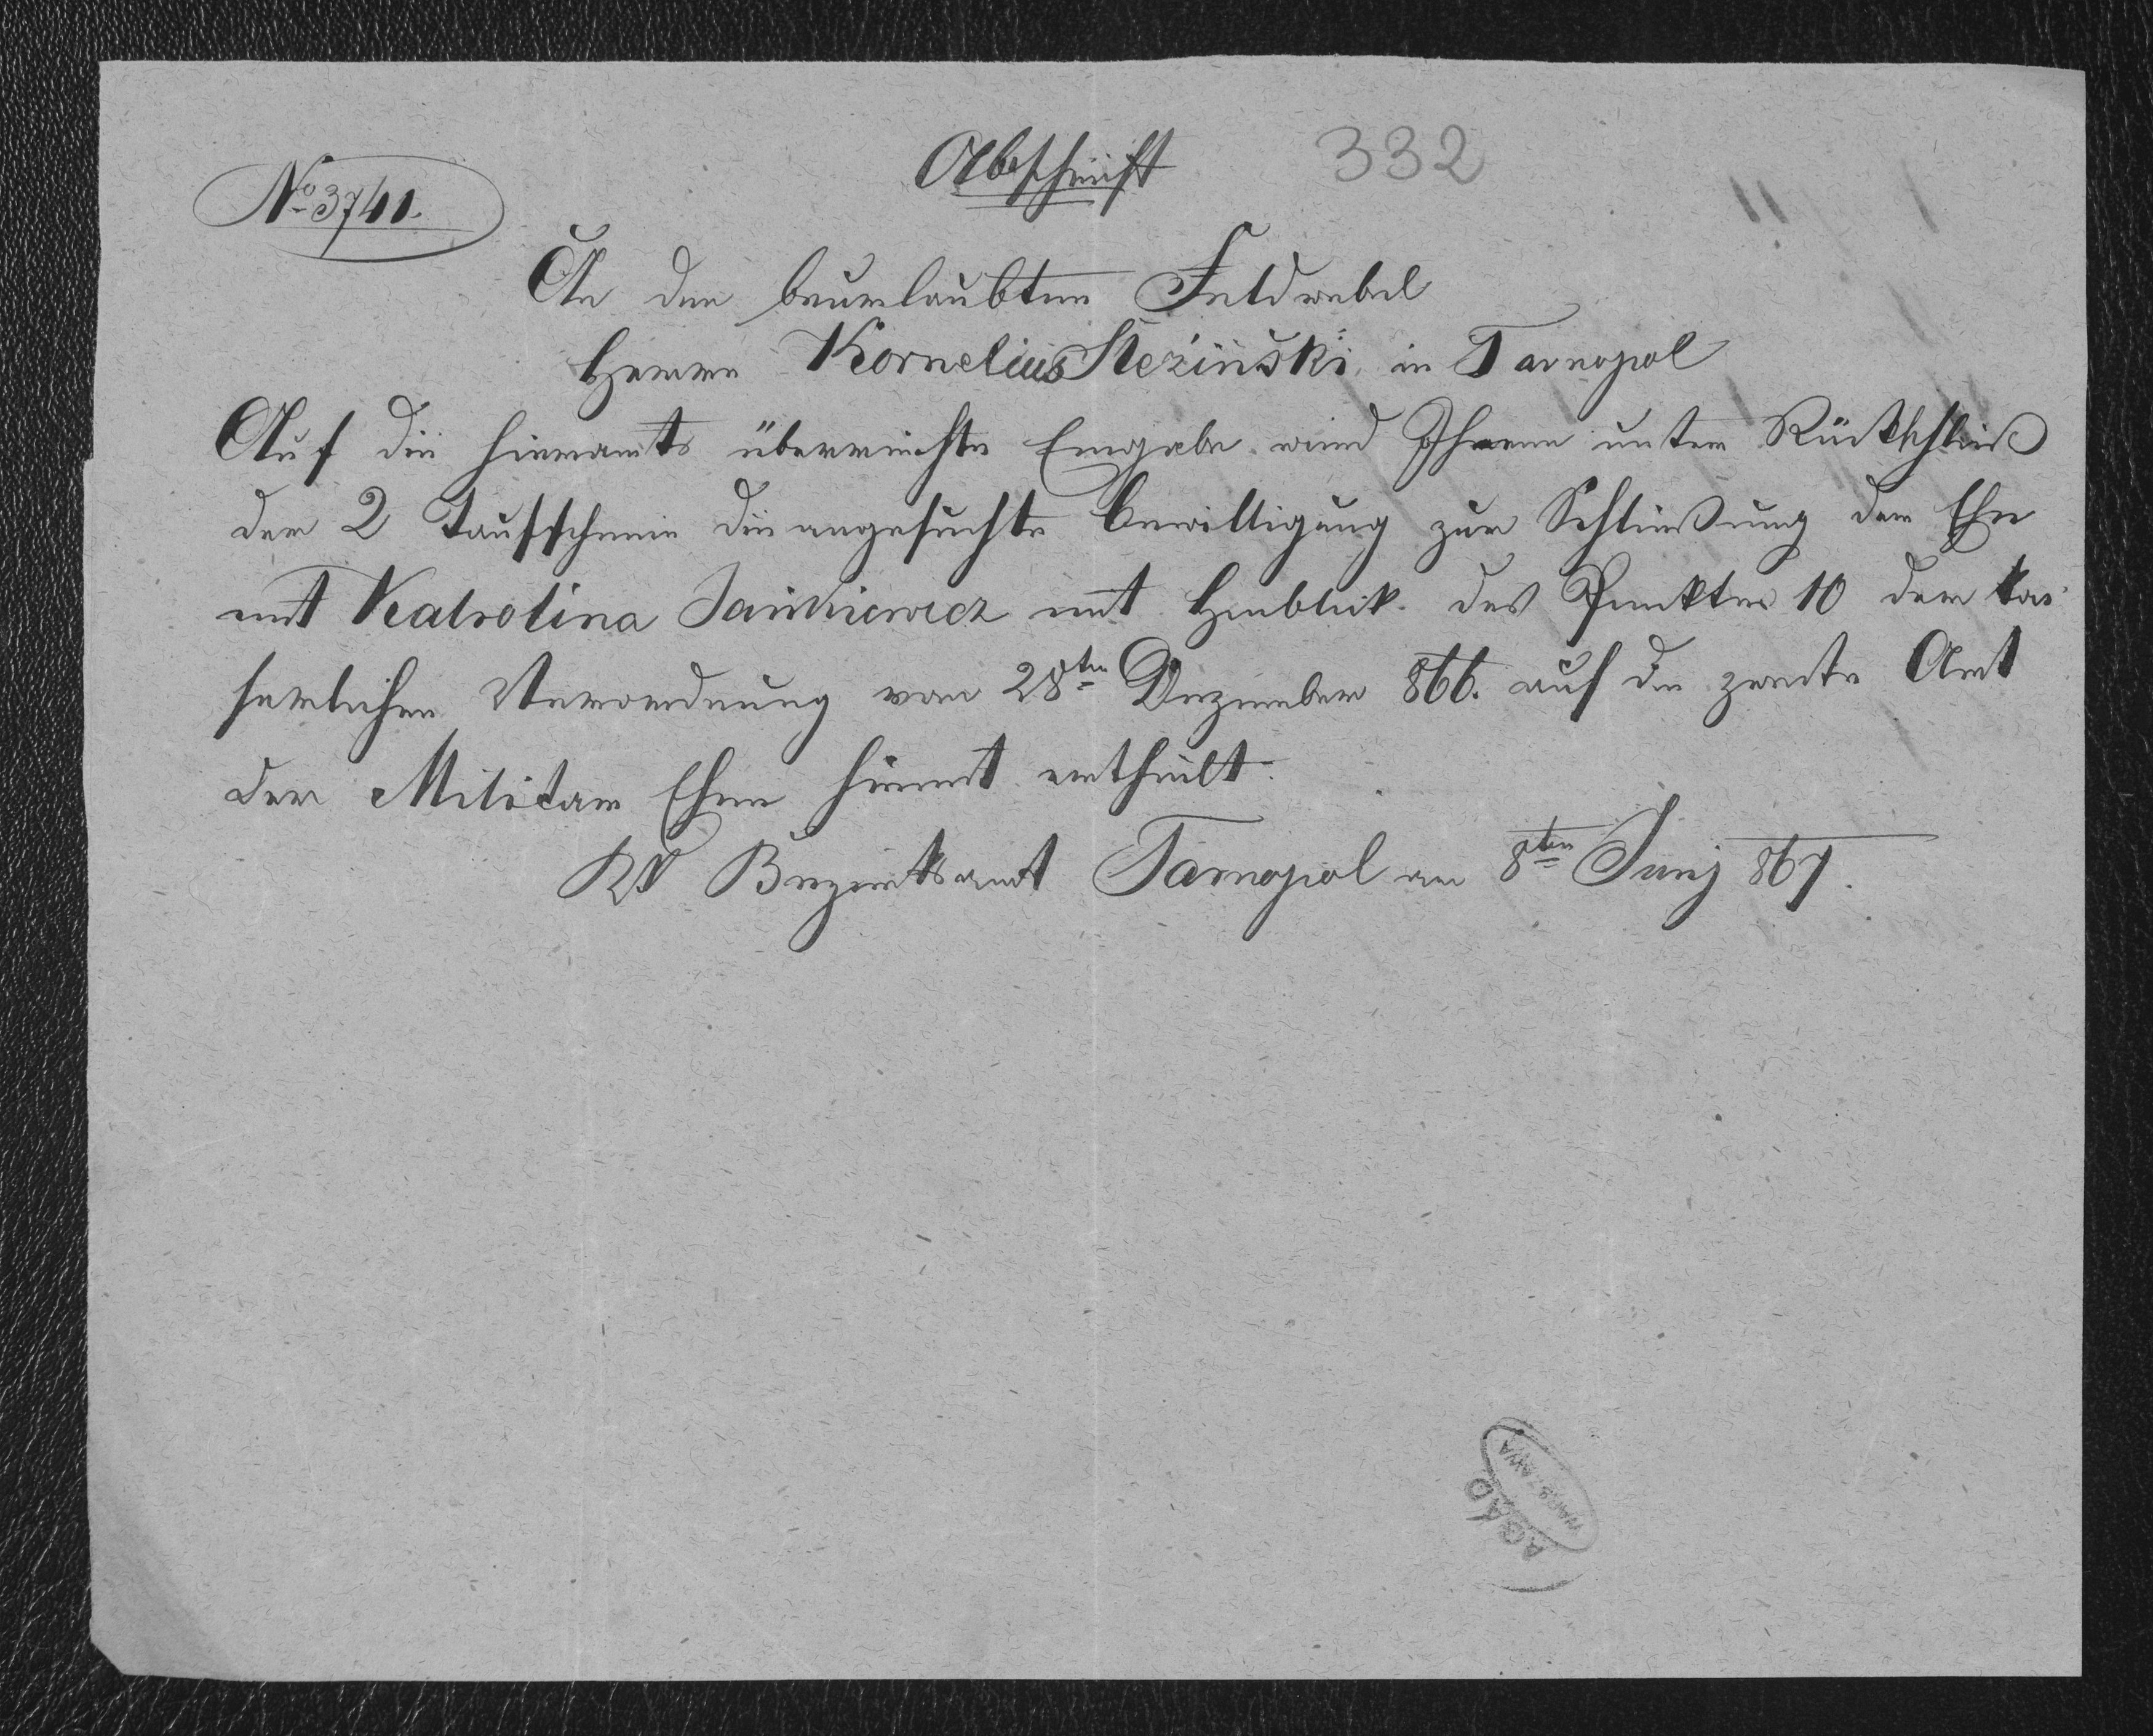 Abschrift 332
No 3741.
An den beurlaubten Feldwebel
Herrn Kornelius Steziński in Tarnopol
Auf die hieramts überreichte Eingabe wird Ihnen unter Rückschluß
der 2 Taufscheine die angesuchte Bewilligung zur Schließung der Ehe
mit Karolina Jankiewicz mit Hinblick des Punktes 10 der kai
serlichen Verordnung vom 28ten Dezember 866. auf die zweite Art
der Militär Ehen hiemit ertheilt.
KK Bezirksamt Tarnopol am 8ten Juny 867.
AGAD
WARSZAWA